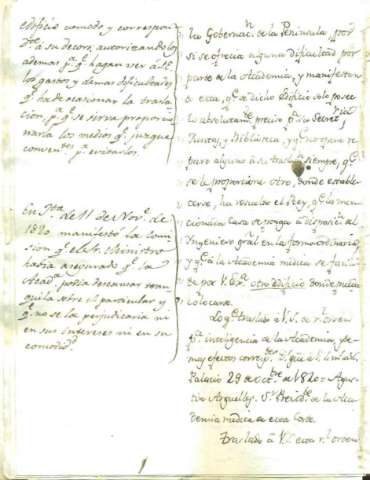 edificio comodo y correspon
dte. á su decoro, autorizandolos
ademas pa. qe. hagan ver á S.E.
los gastos y demas dificultades
qe. ha de ocasionar la trasla
cion, pa. qe. se sirva proporcio
narla los medios qe. juzgue
convenientes pa. evitarlos.
En Jta. de 11 de Novre. de
1820. manifestó la comi
sion qe. el Sr. Ministro
havia asegurado qe. la
Acada. podia descansar tran
quila sobre el particular y
qe. no se la perjudicaria ni
en sus intereses ni en su
comodidad.
la Gobernacn. de la Peninsula, por
si se ofrecia alguna dificultad por
parte de la Academia, y manifestan
do esta, qe. dicho Edificio solo posee
lo absolutamte. preciso pa. su Secreta.
Juntas, y Biblioteca, y qe. no opone re
paro alguno á su traslacn. siempre, qe.
se le proporcione otro, donde estable
cerse, ha resuelto el Rey, qe. la men
cionada Casa se ponga á disposicion del
Ingeniero gral. en la forma ordinaria,
y qe. á la Academia médica se facili
te por V.E. otro edificio donde pueda
colocarse.
Lo qe. traslado á V.S. de rl. orden
pa. inteligencia de la Academia, y de
mas efectos correspondtes. Dios gue. á V.S. ms. años.
Palacio 29 de octbre. de 1820 = Agus
tin Arguelles. Sr. Presidte. de la Aca
demia médica de esta Corte.
Traslado á V.S. esta rl. orden